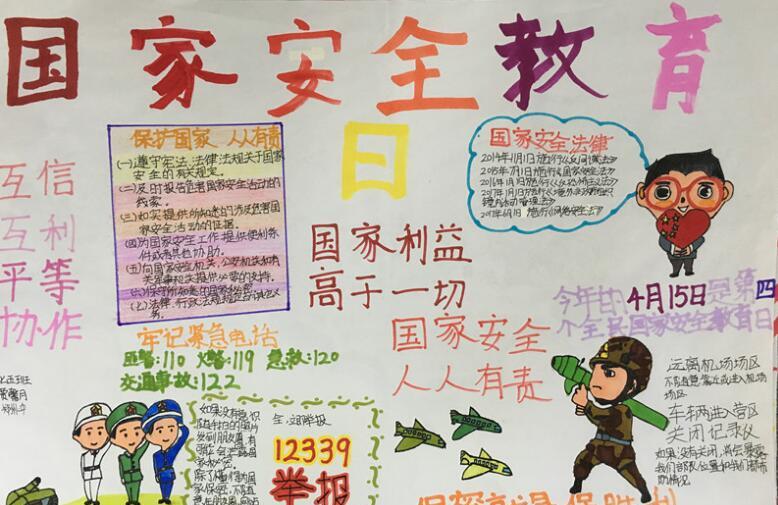 国家安全教育
日
互信
互利
平等
协作
保护国家 人人有责
(一)遵守宪法、法律法规关于国家
安全的有关规定。
(二)及时报告危害国家安全活动的
线索。
(三)如实提供所知悉的涉及危害国家
安全活动的证据。
(四)为国家安全工作提供便利条
件或者其他协助。
(五)向国家安全机关、公安机关和有
关军事机关提供必要的支持
(六)保守所知悉的国家秘密
(七)法律、行政法规规定的其他义
务。
国家安全法律
2014年11月1日施行《反间谍法》
2015年7月1日施行《国家安全法》
2016年1月1日施行《反恐怖主义法》
2017年1月1日施行《境外非政府组织
境内活动管理法》
2017年6月1日 施行《网络安全法》
国家利益
高于一切
国家安全
人人有责
今年的4月15日是第四
个全民国家安全教育日
牢记紧急电话
匪警:110 火警:119 急救:120
交通事故:122
全文明举报
12339
举报
远离机场场区
不得随意靠近或进入机场
场区
车辆进入营区
关闭记录仪
如果没有关闭,将会暴露
我们部队位置和我们城市
的情况